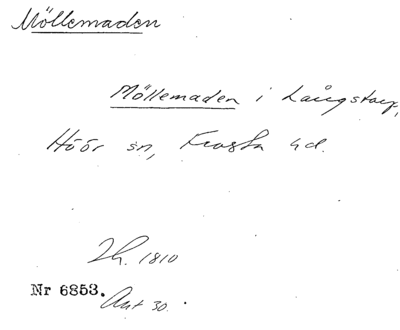 Möllemaden
Möllemaden i Långstorp,
Höör sn, Frosta hd.
1810
Nr 6853.
Ant 30.